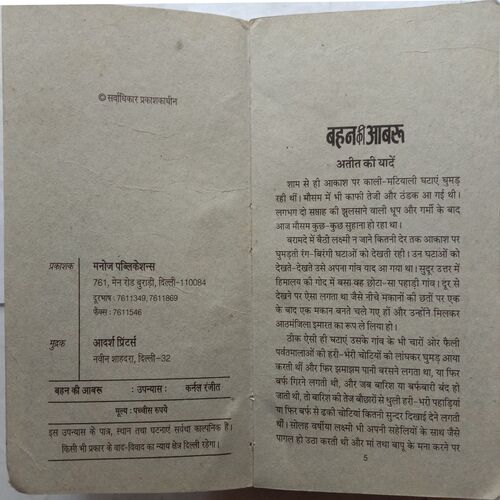 © सर्वाधिकार प्रकाशकाधीन
प्रकाशक
मनोज पब्लिकेशन्स
761, मेन रोड बुराड़ी, दिल्ली-110084
दूरभाष : 7611349, 7611869
फैक्स : 7611546
मुद्रक
आदर्श प्रिंटर्स
नवीन शाहदरा, दिल्ली-32
बहन की आबरू : उपन्यास : कर्नल रंजीत
मूल्य : पच्चीस रुपये
इस उपन्यास के पात्र, स्थान तथा घटनाएं सर्वथा काल्पनिक हैं।
किसी भी प्रकार के वाद-विवाद का न्याय क्षेत्र दिल्ली रहेगा।
बहन की आबरू
अतीत की यादें
शाम से ही आकाश पर काली-मटियाली घटाएं घुमड़
रही थीं। मौसम में भी काफी तेजी और ठंडक आ गई थी।
लगभग दो सप्ताह की झुलसाने वाली धूप और गर्मी के बाद
आज मौसम कुछ-कुछ सुहाना हो रहा था।
बरामदे में बैठी लक्ष्मी न जाने कितनी देर तक आकाश पर
घुमड़ती रंग-बिरंगी घटाओं को देखती रही। उन घटाओं को
देखते-देखते उसे अपना गांव याद आ गया था। सुदूर उत्तर में
हिमालय की गोद में बसा वह छोटा-सा पहाड़ी गांव। दूर से
देखने पर ऐसा लगता था जैसे नीचे मकानों की छतों पर एक
के बाद एक मकान बनते चले गए हों और उन्होंने मिलकर
आठमंजिला इमारत का रूप ले लिया हो।
ठीक ऐसी ही घटाएं उसके गांव के भी चारों ओर फैली
पर्वतमालाओं की हरी-भरी चोटियों को लांघकर घुमड़ आया
करती थीं और फिर झमाझम पानी बरसने लगता था, या फिर
बर्फ गिरने लगती थी, और जब बारिश या बर्फबारी बंद हो
जाती थी, तो बारिश की तेज बौछारों से धुली हरी-भरी पहाड़ियां
या फिर बर्फ से ढकी चोटियां कितनी सुन्दर दिखाई देने लगती
थीं। सोलह वर्षीया लक्ष्मी भी अपनी सहेलियों के साथ जैसे
पागल हो उठा करती थी और मां तथा बापू के मना करने पर
5